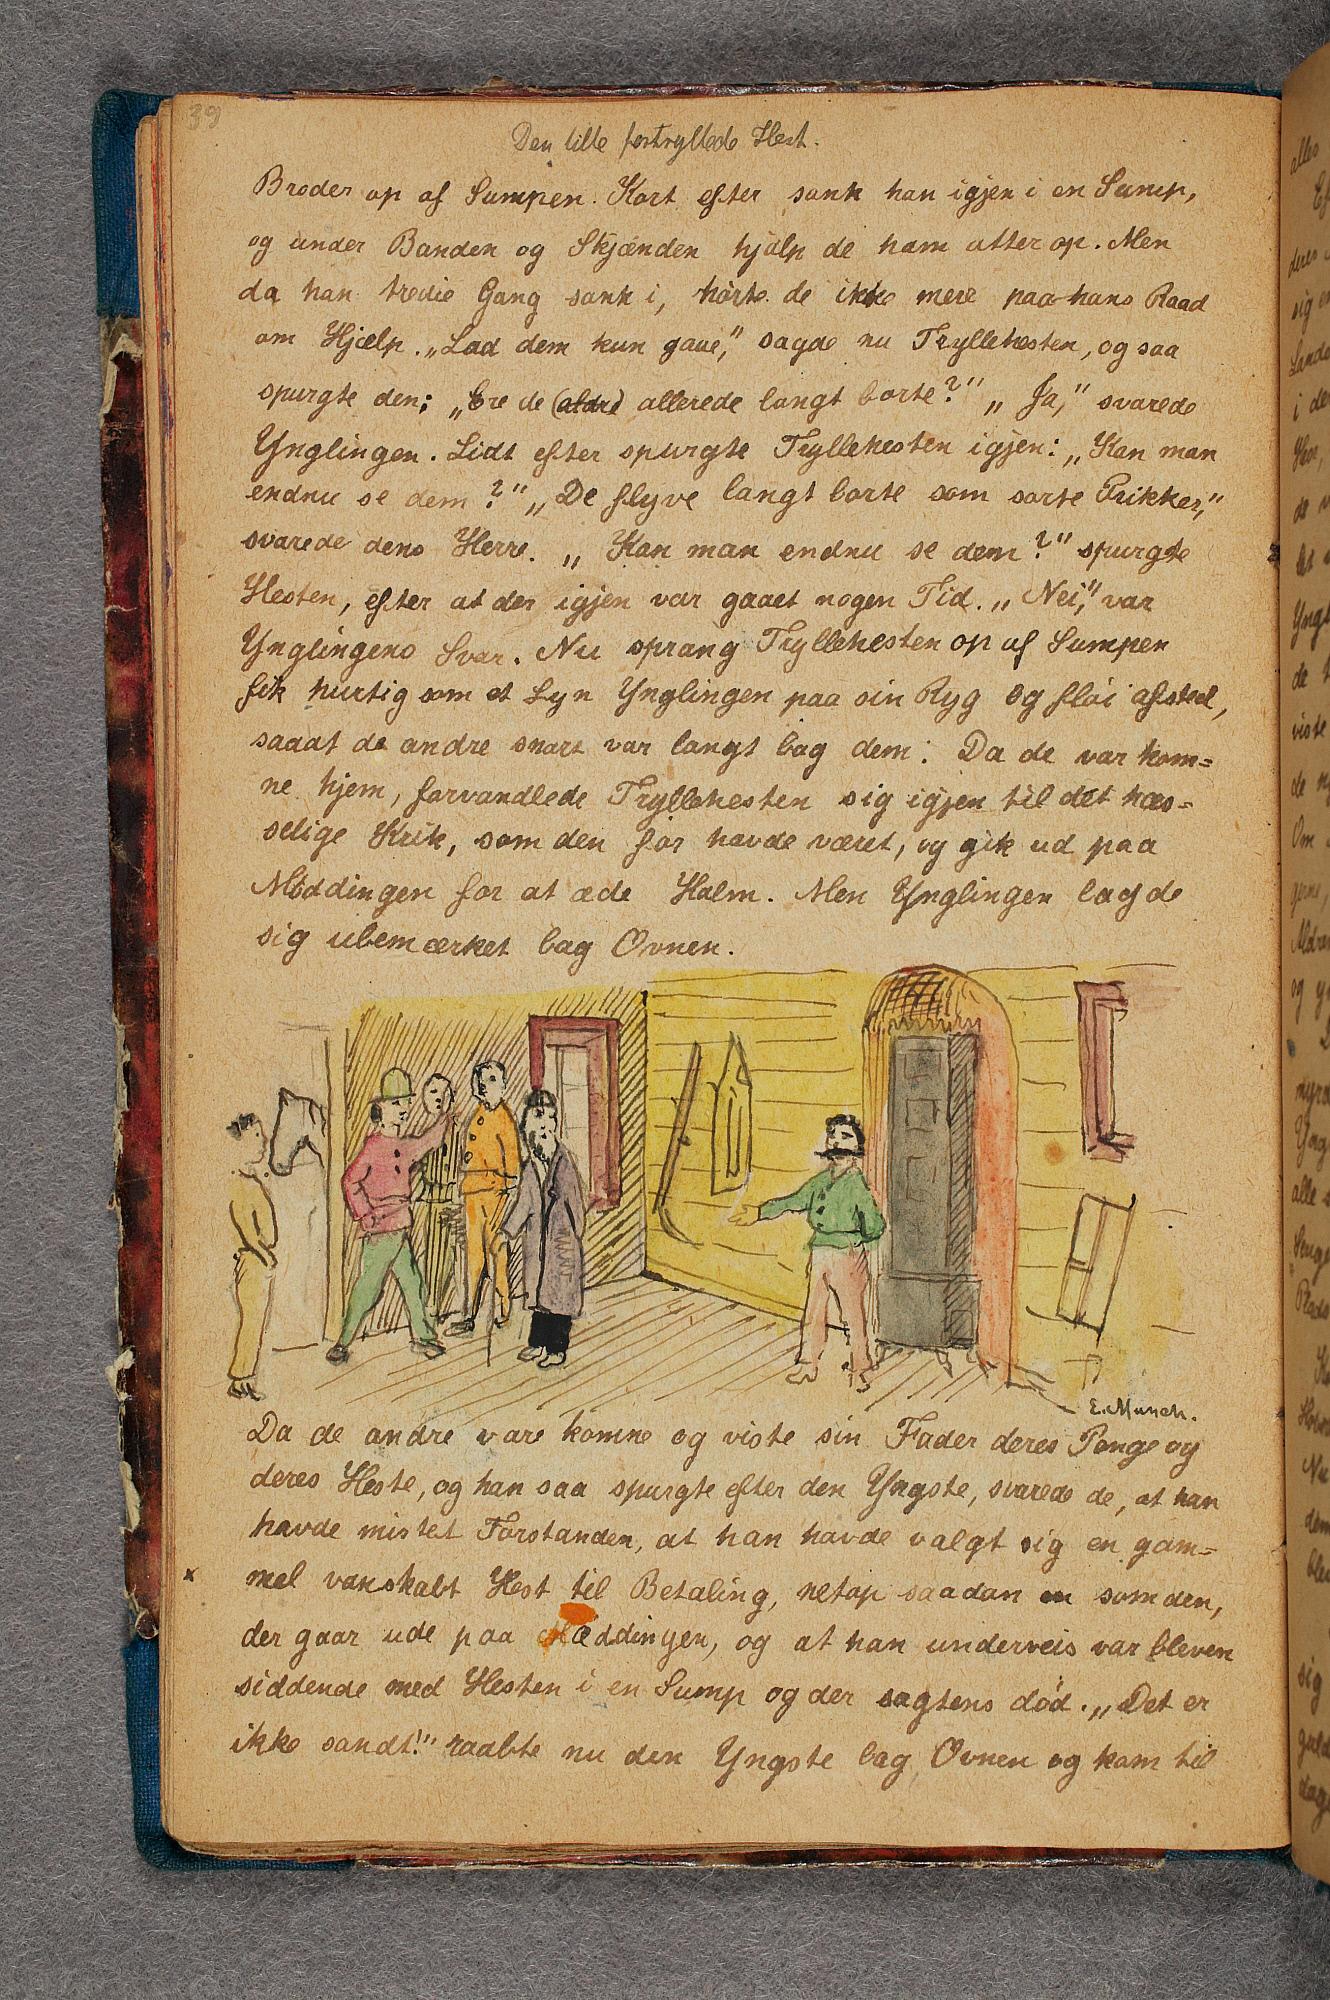 39
Den lille fortryllede Hest.
Broder op af Sumpen. Kort efter sank han igjen i en Sump,
og under Banden og Skjænden hjalp de ham atter op. Men
da han tredie Gang sank i, hørte de ikke mere paa hans Raad
om Hjælp. „Lad dem kun gaae," sagde nu Tryllehesten, og saa
spurgte den; „Ere de (aldre) allerede langt borte?" „Ja," svarede
Ynglingen. Lidt efter spurgte Tryllehesten igjen: „Kan man
endnu se dem?" „De flyve langt borte som sorte Prikker,"
svarede dens Herre. „Kan man endnu se dem?" spurgte
Hesten, efter at der igjen var gaaet nogen Tid. „Nei," var
Ynglingens Svar. Nu sprang Tryllehesten op af Sumpen
fik hurtig som et Lyn Ynglingen paa sin Ryg og fløi afsted,
saaat de andre snart var langt bag dem. Da de var kom=
ne hjem, forvandlede Tryllehesten sig igjen til det hæs=
selige Krik, som den før havde været, og gik ud paa
Møddingen for at æde Halm. Men Ynglingen lagde
sig ubemærket bag Ovnen.
E. Munch.
Da de andre vare komne og viste sin Fader deres Penge og
deres Heste, og han saa spurgte efter den Yngste, svarede de, at han
havde mistet Forstanden, at han havde valgt sig en gam=
x mel vanskabt Hest til Betaling, netop saadan en som den,
der gaar ude paa Mæddingen, og at han underveis var bleven
siddende med Hesten i en Sump og der sagtens død. „Det er
ikke sandt!" raabte nu den Yngste bag Ovnen og kom til